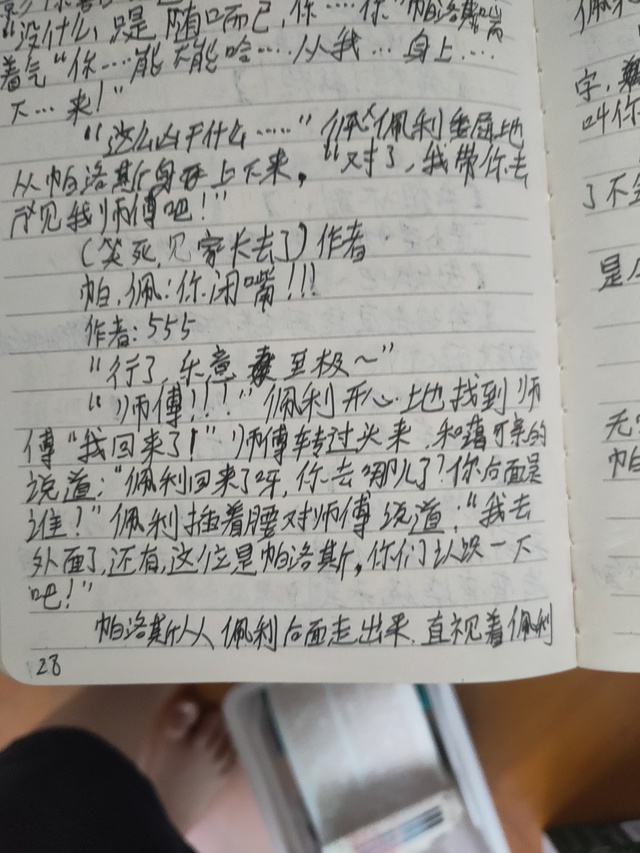 "没什么,只是随口而已,你……你"帕洛斯喘
着气"你……能不能哈……从我…身上…
下…来!"
"这么凶干什么……"佩利委屈地
从帕洛斯身上下来,"对了,我带你去
见我师傅吧!"
(笑死,见家长去了)作者
帕,佩:你闭嘴!!!
作者:555
"行了,乐意至极~"
"师傅!!!"佩利开心上地找到师
傅"我回来了!"师傅转过头来,和蔼可亲的
说道:"佩利回来了呀,你去哪儿了?你后面是
谁?"佩利插着腰对师傅说道:"我去
外面了,还有,这位是帕洛斯,你们认识一下
吧!"
帕洛斯从佩利后面走出来,直视着佩利
28
佩利
字,
叫你
了不
是
无
帕